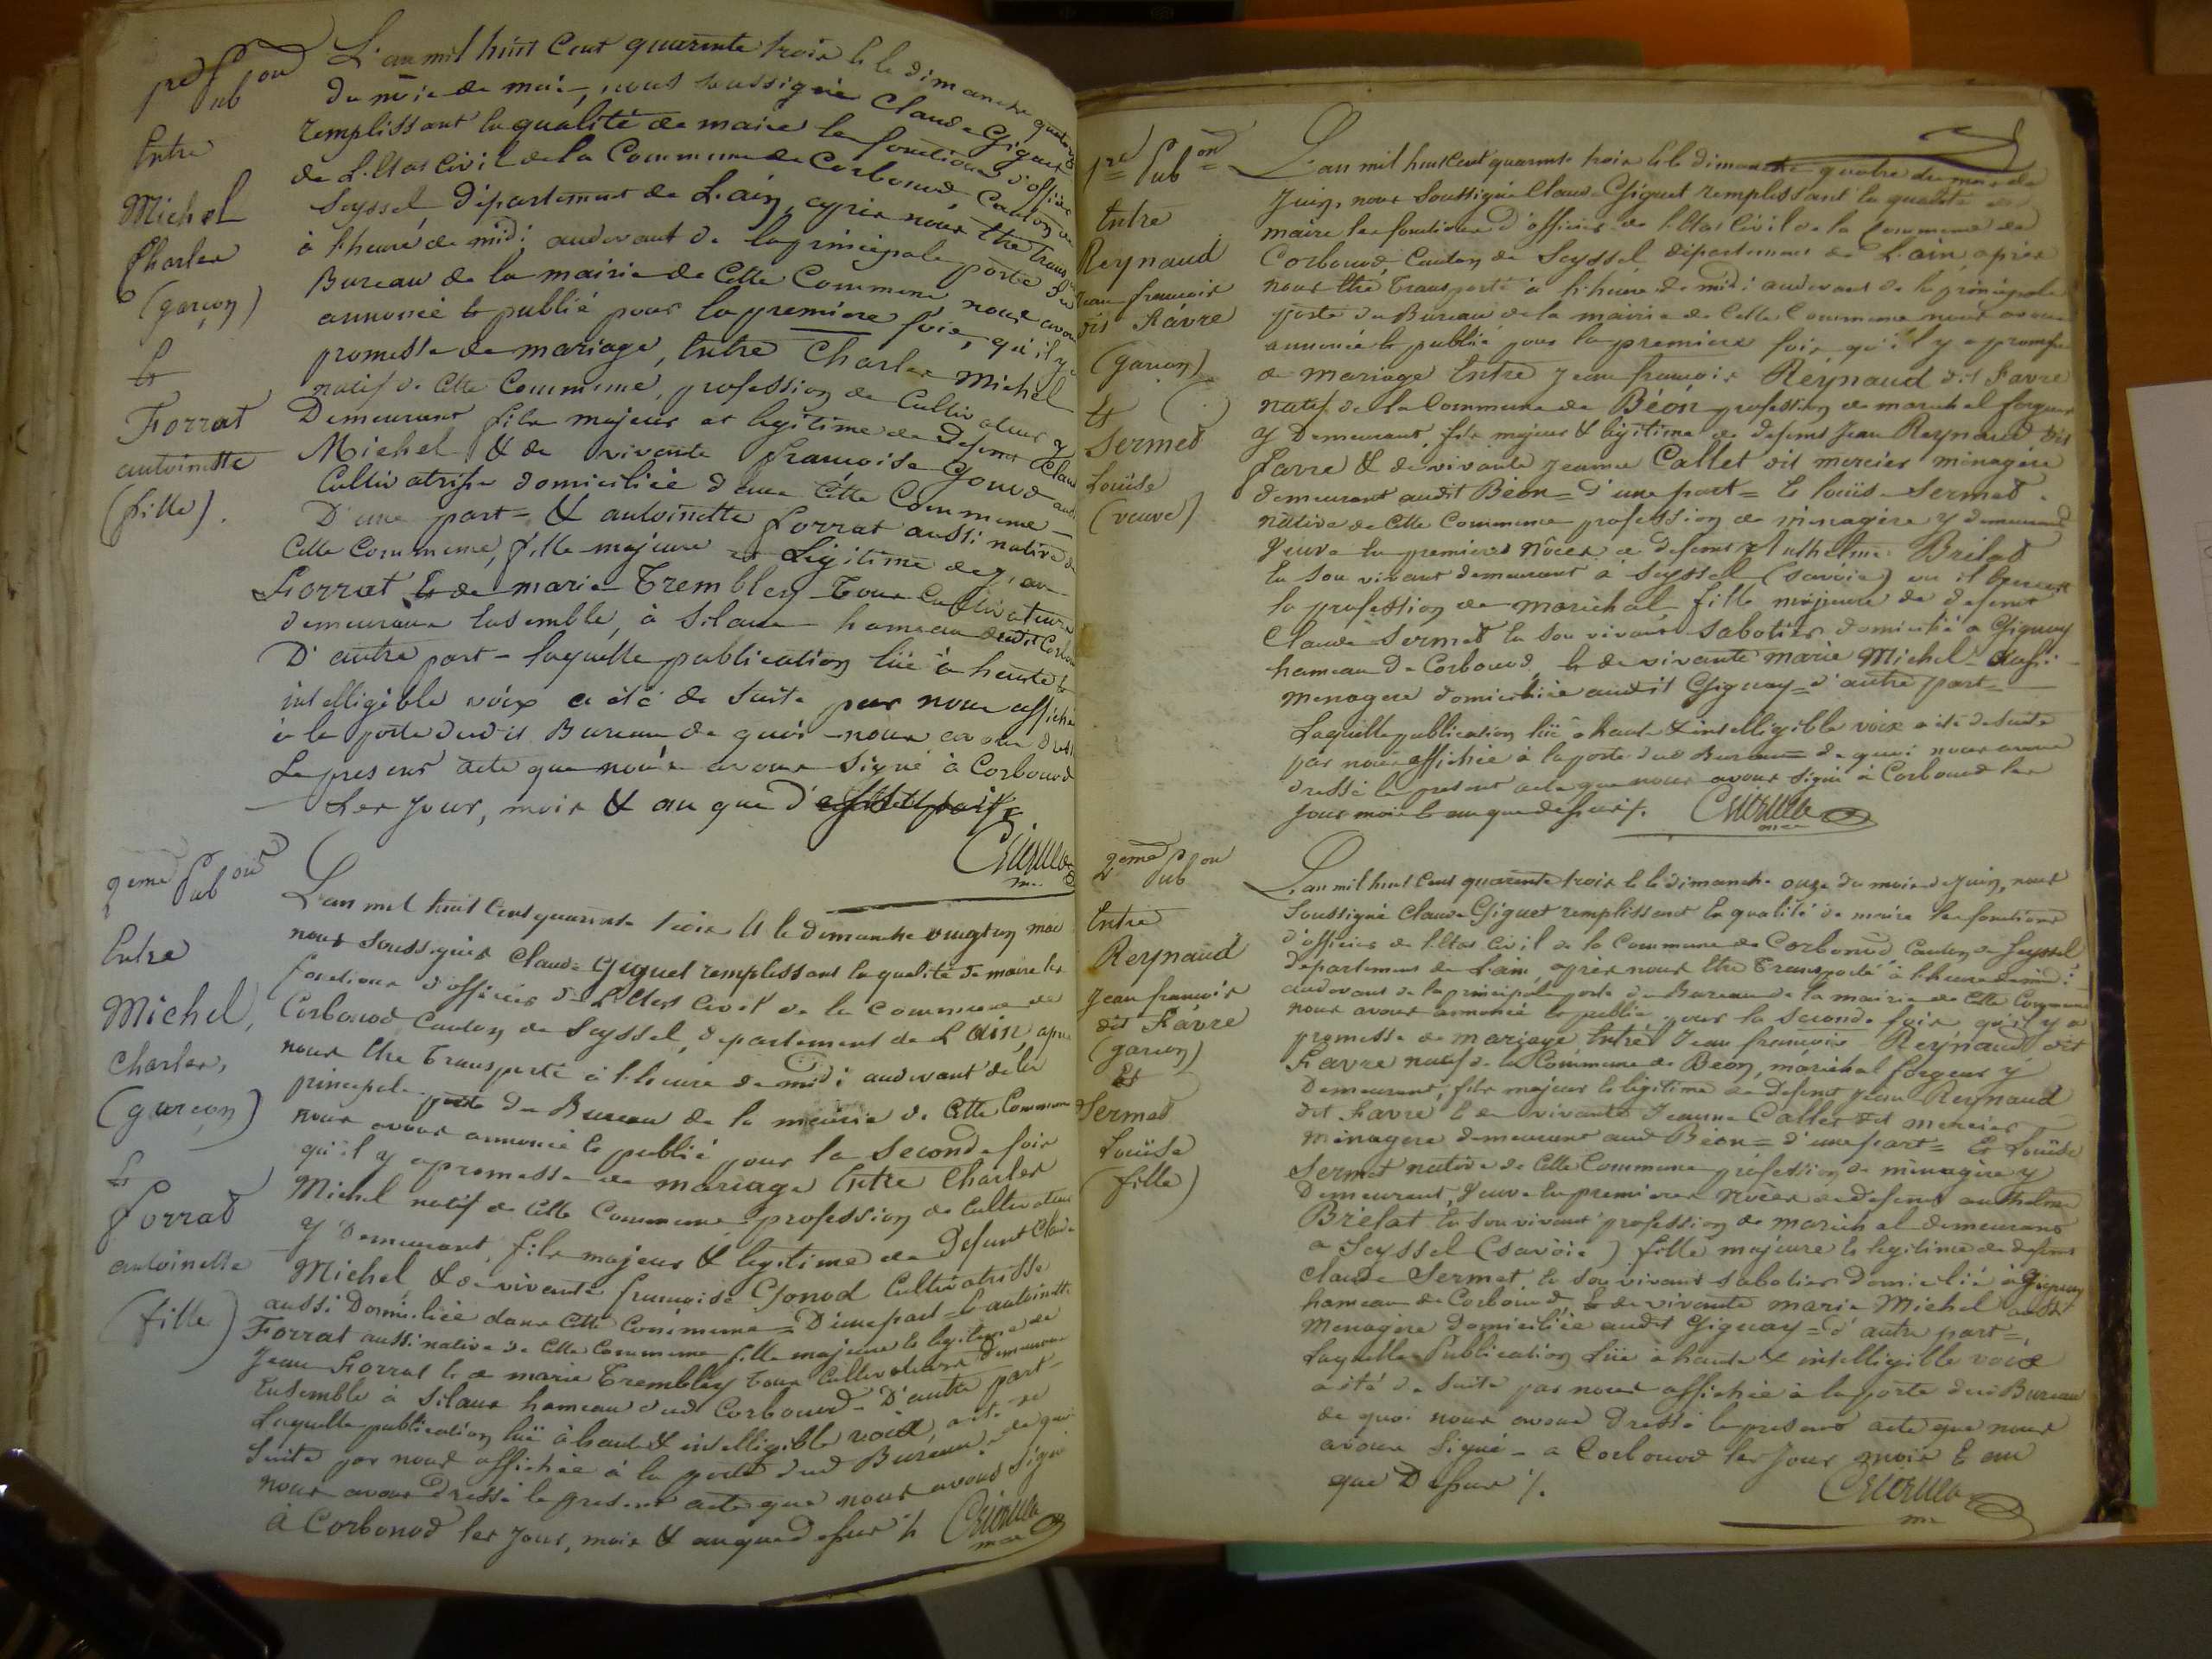 1re Pubon
Entre
Michel
Charles
(garçon)
Et
Forrat
antoinette
(fille).
L'an mil huit Cent quarante trois & le dimanche quatorze
du mois de mai, nous soussigné Claude Giguet
remplissant la qualité de maire les fonctions d'officier
de L'Etat Civil de la Commune de Corbonod, Canton de
Seyssel, département de L'ain, après nous être transporté
à l'heure de midi audevant de la principale porte du
Bureau de la mairie de Cette Commune nous avons
annoncé & publié pour la première fois, qu'il y a
promesse de mariage, Entre Charles Michel
natif de Cette Commune, profession de Cultivateur y
Demeurant fils majeur et légitime de Defunt Claude
Michel & de vivante françoise Gonod aussi
Cultivatrisse domiciliée dans Cette Commune
D'une part = & antoinette Forrat aussi native de
Cette Commune, fille majeure et Légitime de jean
Forrat & de marie Trembley Tous Cultivateurs
demeurans Ensemble, à Silans hameau dudit Corbonod
D'autre part - laquelle publication lüe à haute &
intelligible voix a été de suite par nous affichée
à la porte dudit Bureau de quoi nous avons dressé
Le present acte que nous avons signé à Corbonod
Les jour, mois & an que d'
mre
2eme Pubon
Entre
Michel,
Charles,
(garçon)
Et
Forrat
antoinette
(fille)
L'an mil huit Cent quarante trois & le dimanche vingtun mai
nous soussignés Claude Giguet remplissant la qualité de maire les
fonctions d'officier de L'Etat Civil de la Commune de
Corbonod Canton de Seyssel, département de L'ain, après
nous être Transporté à l'heure de midi audevant de la
principale porte du Bureau de la mairie de Cette Commune
nous avons annoncé & publié pour la seconde fois
qu'il y a promesse de mariage Entre Charles
Michel natif de Cette Commune profession de Cultivateur
y Demeurant, fils majeur & légitime de Defunt Claude
Michel, & de vivante françoise Gonod Cultivatrisse
aussi Domiciliée dans Cette Commune = D'une part = & antoinette
Forrat aussi native de Cette Commune fille majeure & légitime de
Jean Forrat & de marie Trembley Tous Cultivateurs demeurans
Ensemble à Silans hameau dud Corbonod - D'autre part -
Laquelle publication lüe à haute & intelligible voix, a été de
suite par nous affichée à la porte dud Bureau, de quoi
nous avons dressé le present acte que nous avons signé
à Corbonod les jour, mois & an que dessus
mre
1re Pubon
Entre
Reynaud
jean françois
dit Favre
(garçon)
Et
Sermet
Louïse
(veuve)
L'an mil huit Cent quarante trois & le dimanche quatre du mois de
Juin, nous soussigné Claude Giguet remplissant la qualité de
maire les fonctions d'officier de L'Etat Civil de la Commune de
Corbonod, Canton de Seyssel département de L'ain après
nous être Transporté à l'heure de midi audevant de la principale
porte du Bureau de la mairie de Cette Commune nous avons
annoncé & publié pour la première fois qu'il y a promesse
de mariage Entre jean françois Reynaud dit Favre
natif de la Commune de Béon profession de marechal forgeur
y Demeurant, fils majeur & légitime de defunt Jean Reynaud dit
Favre & de vivante jeanne Callet dit mercier ménagère
demeurant audit Béon = D'une part = & louïse Sermet
native de Cette Commune profession de ménagère y demeurant
Veuve En premières nôces de defunt Anthelme Brélat
En son vivant demeurant à Seyssel (savoie) ou il Exerçait
la profession de maréchal fille majeure de defunt
Claude Sermet En son vivant sabotier domicilié à Gignay
hameau de Corbonod & de vivante marie Michel aussi
menagere domiciliée audit Gignay = d'autre part =
Laquelle publication lüe à haute & intelligible voix a été de suite
par nous affichée à la porte dud Bureau = de quoi nous avons
dressé le present acte que nous avons signé à Corbonod les
jour mois & an que dessus /.
mre
2eme Pubon
Entre
Reynaud
jean françois
dit Favre
(garçon)
Et
Sermet
Louïse
(fille)
L'an mil huit Cent quarante trois & le dimanche onze du mois de Juin, nous
soussigné Claude Giguet remplissant la qualité de maire les fonctions
d'officier de L'Etat Civil de la Commune de Corbonod, Canton de Seyssel,
département de L'ain, après nous être Transporté à l'heure de midi
audevant de la principale porte du Bureau de la mairie de Cette Commune
nous avons annoncé & publié pour la seconde fois, qu'il y a
promesse de mariage Entre Jean françois Reynaud dit
Favre natif de la Commune de Béon, maréchal forgeur y
Demeurant, fils majeur & légitime de Defunt jean Reynaud
dit Favre & de vivante Jeanne Callet dit mercier
ménagere demeurant aud Béon = d'une part = Et Louïse
Sermet native de Cette Commune profession de ménagère y
Demeurant, Veuve En premieres nôces de defunt anthelme
Brélat En son vivant profession de maréchal demeurant
a Seyssel (savoie) fille majeure & légitime de defunt
Claude Sermet, En son vivant sabotier domicilié à Gignay
hameau de Corbonod, & de vivante marie Michel aussi
menagere domiciliée audit Gignay = d'autre part =
Laquelle Publication Lüe à haute & intelligible voix
a été de suite par nous affichée à la porte dud Bureau
de quoi nous avons Dressé le present acte que nous
avons signé - a Corbonod les jour mois & an
que Dessus /.
mre